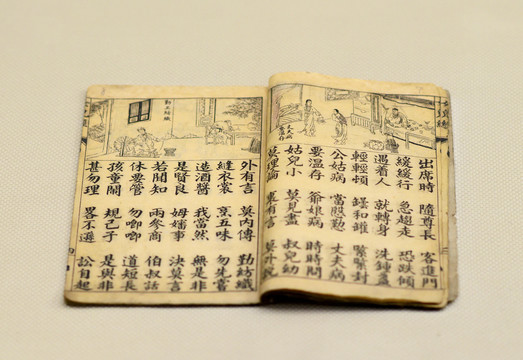 出席時 隨尊長 客進門
緩緩行 急趨走 恐跌傾
遇着人 就轉身 洗鍾盞
輕輕頓 罎和罐 緊緊封
公姑病 當殷勤 丈夫病
要溫存 爺娘病 時時問
姑兒小 莫見盡 叔兒幼
莫理論 裏有言 莫外說
外有言 莫內傳 勤紡織
縫衣裳 烹五味 勿先嘗
造酒醬 我當然 無是非
是賢良 姆嬸事 決莫言
若聞知 兩參商 伯叔話
休要管 勿唧唧 道短長
孩童鬧 規己子 是與非
甚勿理 畧不遜 訟自起